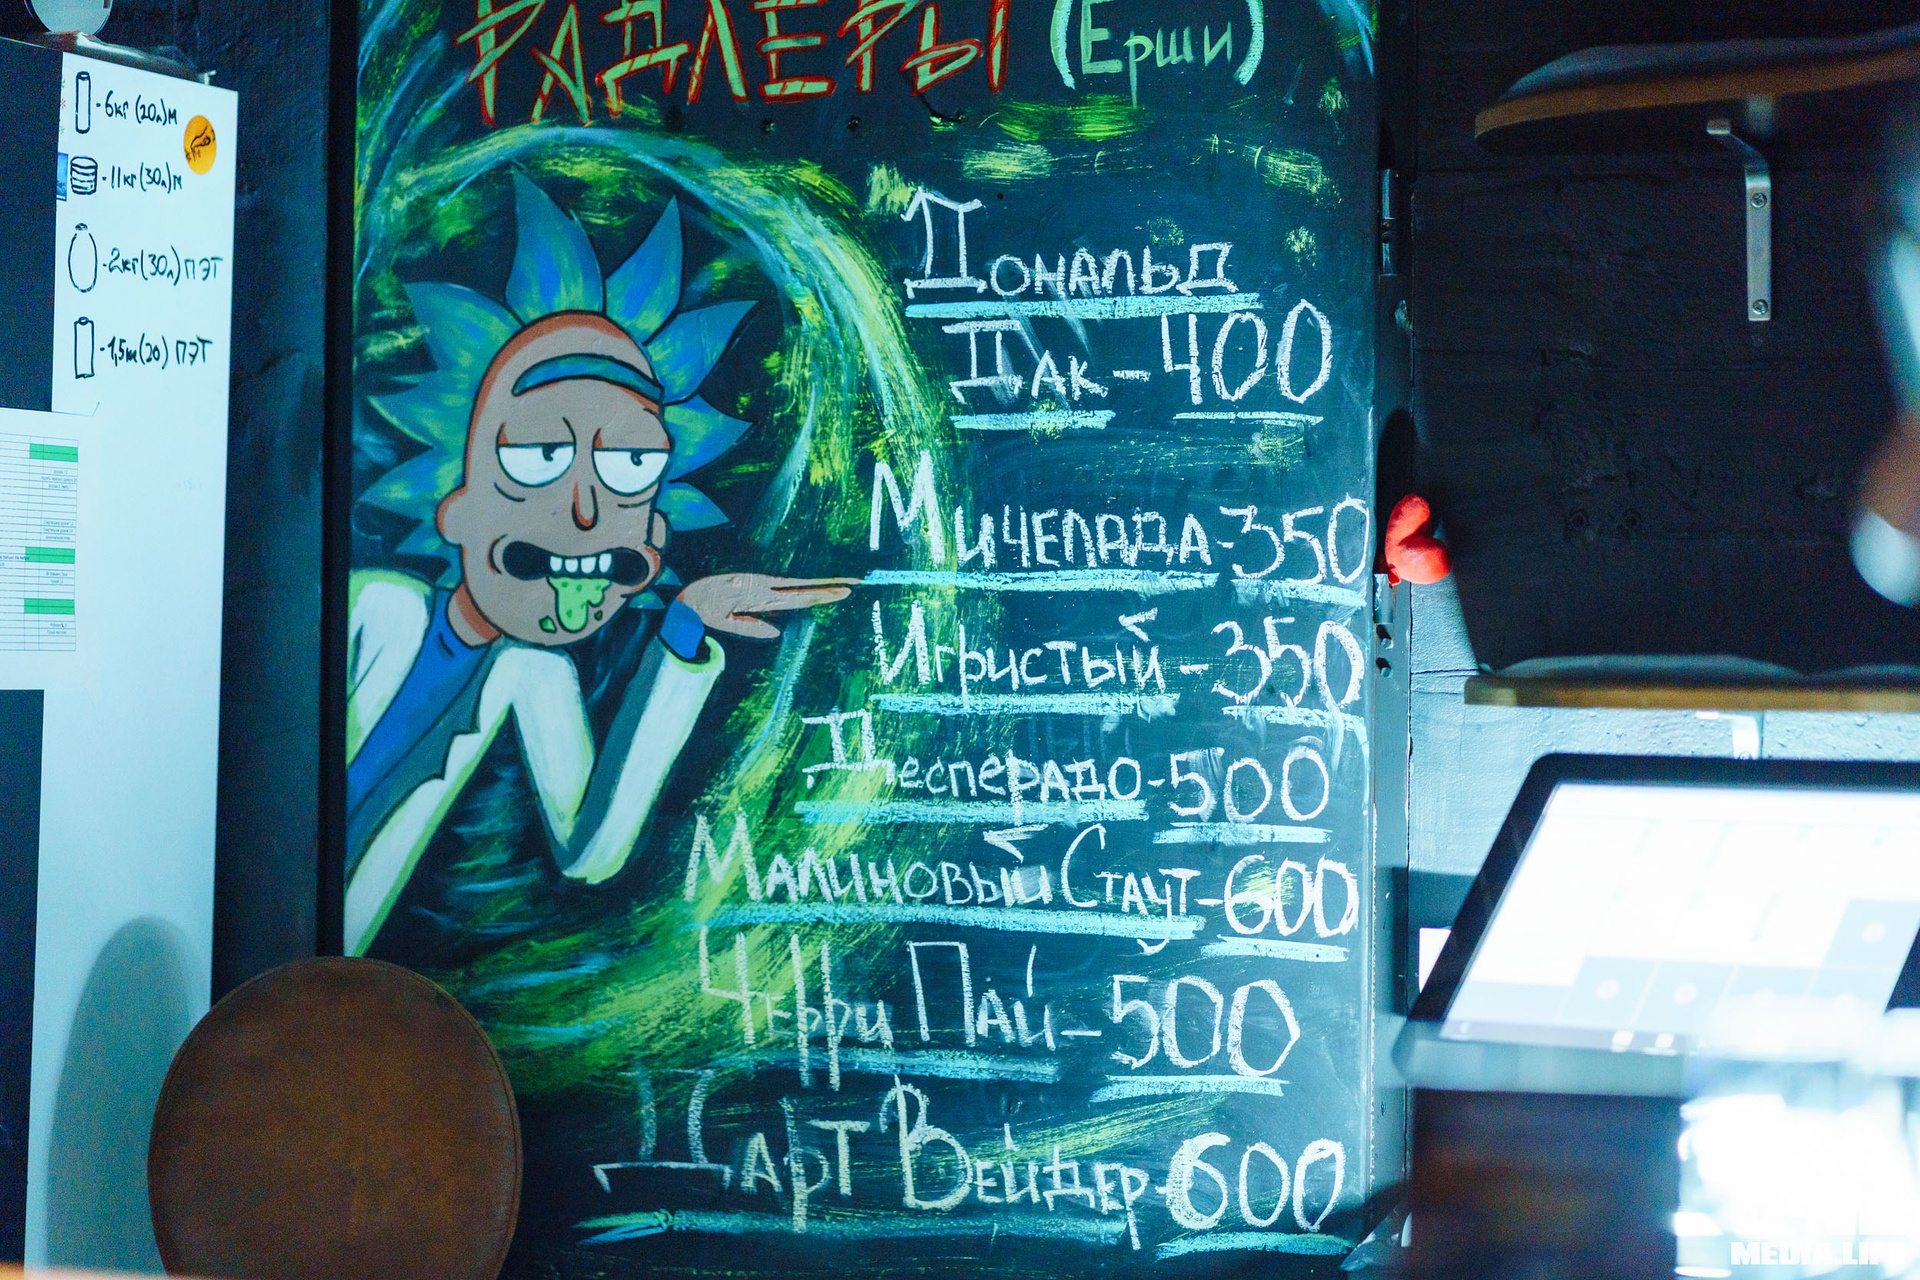 РАДЛЕРЫ (Ерши)
Дональд
Дак-400
Мичелада-350
Игристый-350
Десперадо-500
Малиновый Стаут-600
Черри Пай-500
Дарт Вейдер-600
-6кг (20л)М
-11кг(30л)М
-2кг(30л)ПЭТ
-1,5кг(20) ПЭТ